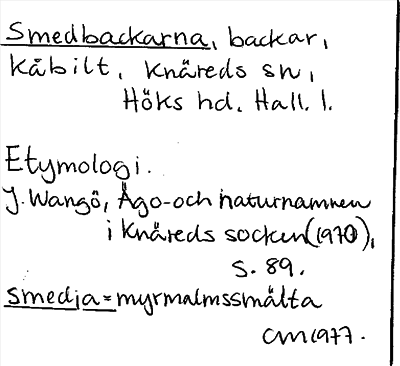 Smedbackarna, backar,
Kåbilt, Knäreds sn,
Höks hd. Hall. l.
Etymologi.
J. Wangö, Ägo- och naturnamnen
i Knäreds socken (1970),
s. 89.
smedja = myrmalmssmälta
CM 1977.